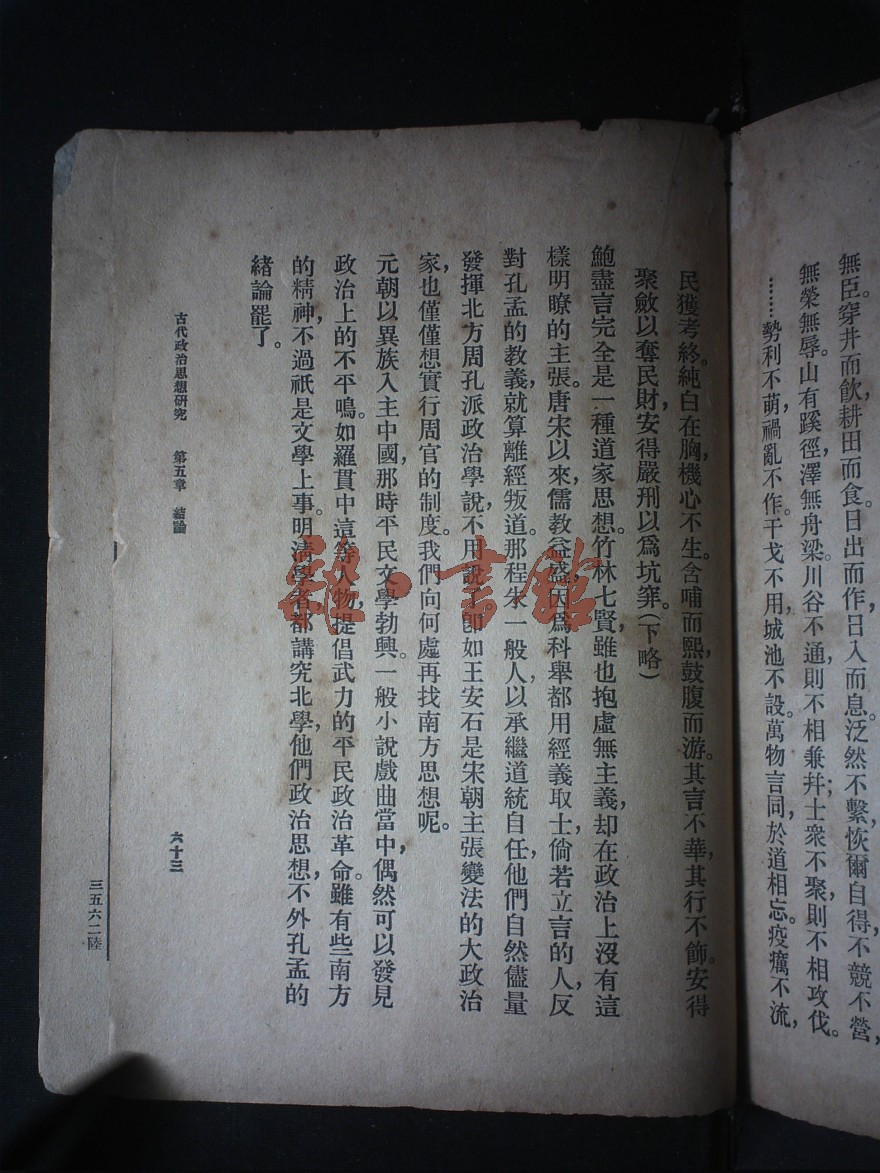 無臣。穿井而飲，耕田而食，日出而作，日入而息。泛然不繫，恢爾自得，不競不營，
無榮無辱。山有蹊徑，澤無舟梁。川谷不通，則不相兼幷；士衆不聚，則不相攻伐。
……勢利不萌，禍亂不作。干戈不用，城池不設。萬物言同，於道相忘。疫癘不流，
民獲考終。純白在胸，機心不生。含哺而熙，鼓腹而游。其言不華，其行不飾。安得
聚斂以奪民財，安得嚴刑以爲坑穽。（下略）
鮑盡言完全是一種道家思想。竹林七賢，雖也抱虛無主義，却在政治上沒有這
樣明瞭的主張。唐宋以來，儒敎益盛，因爲科舉都用經義取士，倘若立言的人，反
對孔孟的敎義，就算離經叛道。那程朱一般人，以承繼道統自任，他們自然儘量
發揮北方周孔派政治學說，不用說了。卽如王安石是宋朝主張變法的大政治
家，也僅僅想實行周官的制度。我們向何處再找南方思想呢。
元朝以異族入主中國，那時平民文學勃興。一般小說戲曲當中，偶然可以發見
政治上的不平鳴。如羅貫中這等人物，提倡武力的平民政治革命。雖有些南方
的精神，不過祇是文學上事。明淸學者，都講究北學，他們政治思想，不外孔孟的
緒論罷了。
古代政治思想研究　第五章　結論
六十三
三五六二陸
藝·書館